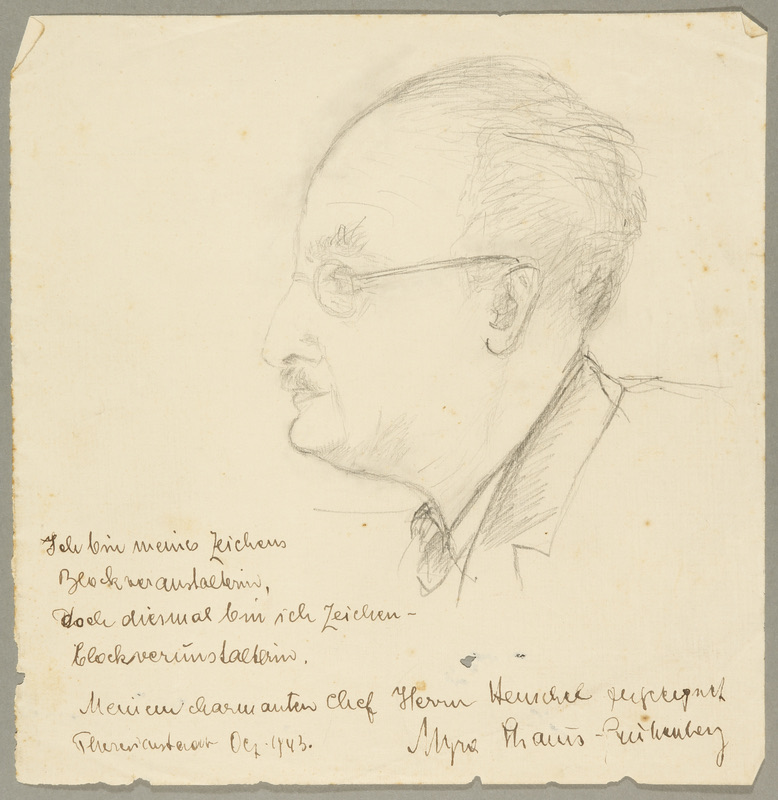 Ich bin meines Zeichens
Blockveranstalterin,
Doch diesmal bin ich Zeichen-
blockverunstalterin.
Meinem charmanten Chef Herrn Henschel zugeeignet
Theresienstadt Dez. 1943. Myra